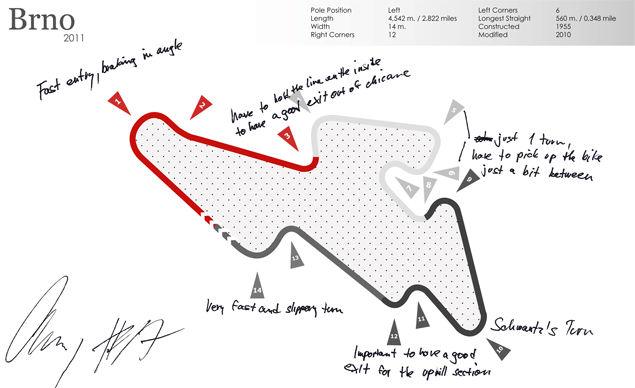 Brno
2011
Pole Position Left Left Corners 6
Length 4.542 m. / 2.822 miles Longest Straight 560 m. / 0.348 mile
Width 14 m. Constructed 1955
Right Corners 12 Modified 2010
Fast entry, braking in angle
1
2
have to hold the line on the inside
to have a good exit out of chicane
3
5
just 1 turn,
have to pick up the bike
just a bit between
6
7
8
9
13
14
Very fast and slippery turn
12
11
10
Schwantz's Turn
Important to have a good
exit for the uphill section
#17